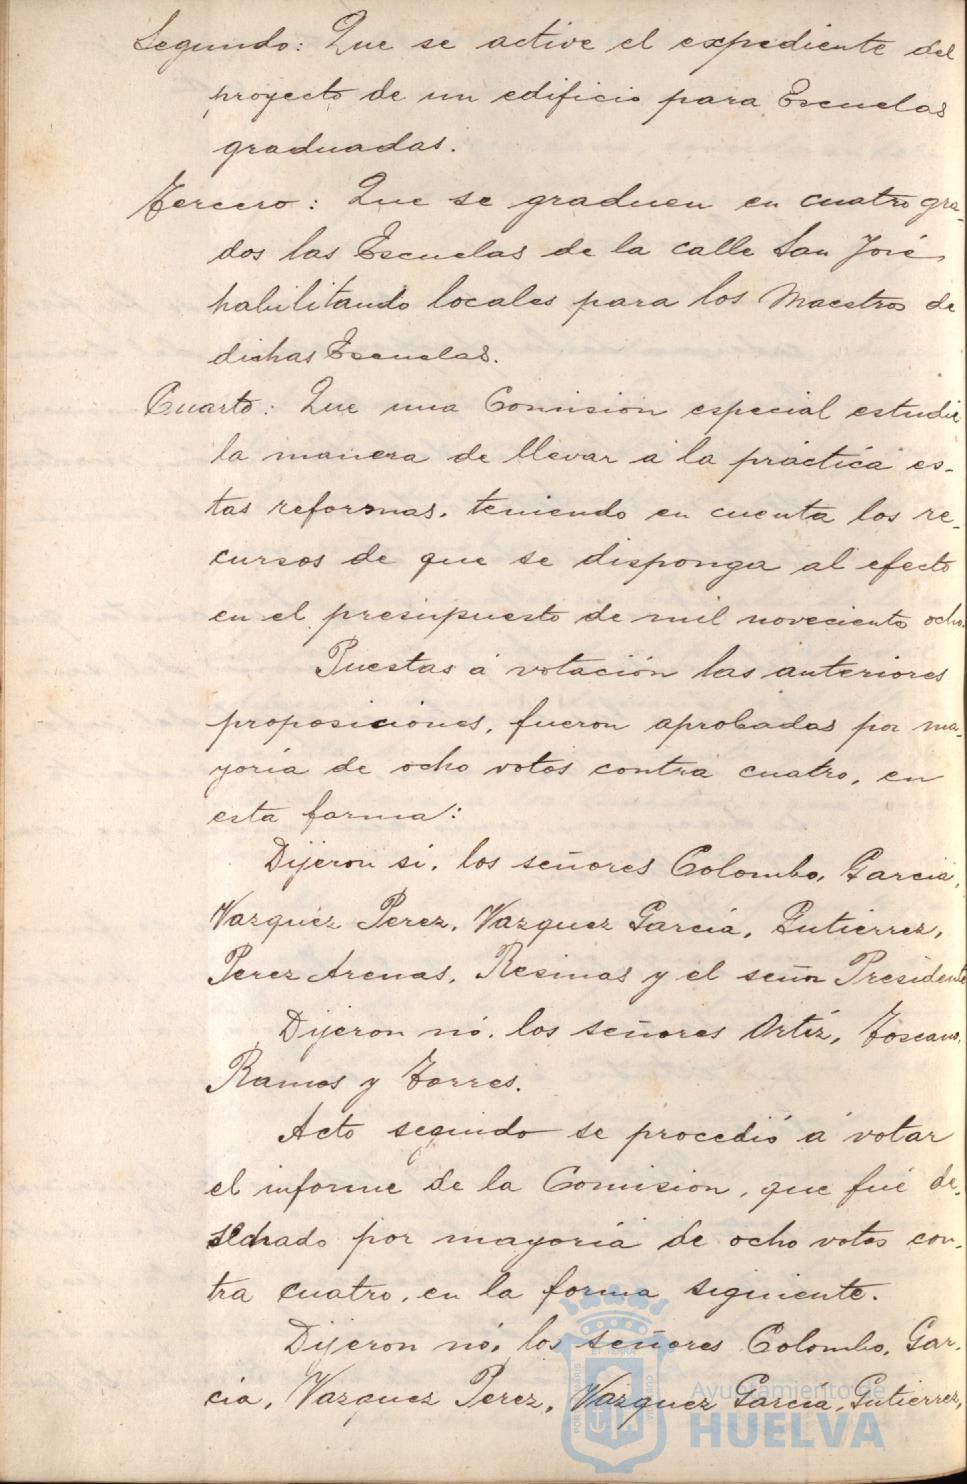 Segundo: Que se active el expediente del
proyecto de un edificio para Escuelas
graduadas.
Tercero: Que se graduen en cuatro gra-
dos las Escuelas de la calle San José,
habilitando locales para los Maestros de
dichas Escuelas.
Cuarto: Que una Comision especial estudie
la manera de llevar á la práctica es-
tas reformas, teniendo en cuenta los re-
cursos de que se disponga al efecto
en el presupuesto de mil noveciento ocho.
Puestas á votación las anteriores
proposiciones, fueron aprobadas por ma-
yoría de ocho votos contra cuatro, en
esta forma:
Dijeron sí, los señores Colombo, García,
Vazquez Perez, Vazquez García, Gutierrez,
Perez Arenas, Resinas y el señor Presidente
Dijeron nó, los señores Ortíz, Toscano,
Ramos y Torres.
Acto seguido se procedió á votar
el informe de la Comision, que fué de-
sechado por mayoría de ocho votos con-
tra cuatro, en la forma siguiente.
Dijeron nó, los señores Colombo, Gar-
cia, Vazquez Perez, Vazquez García, Gutierrez,
Ayuntamiento de
HUELVA